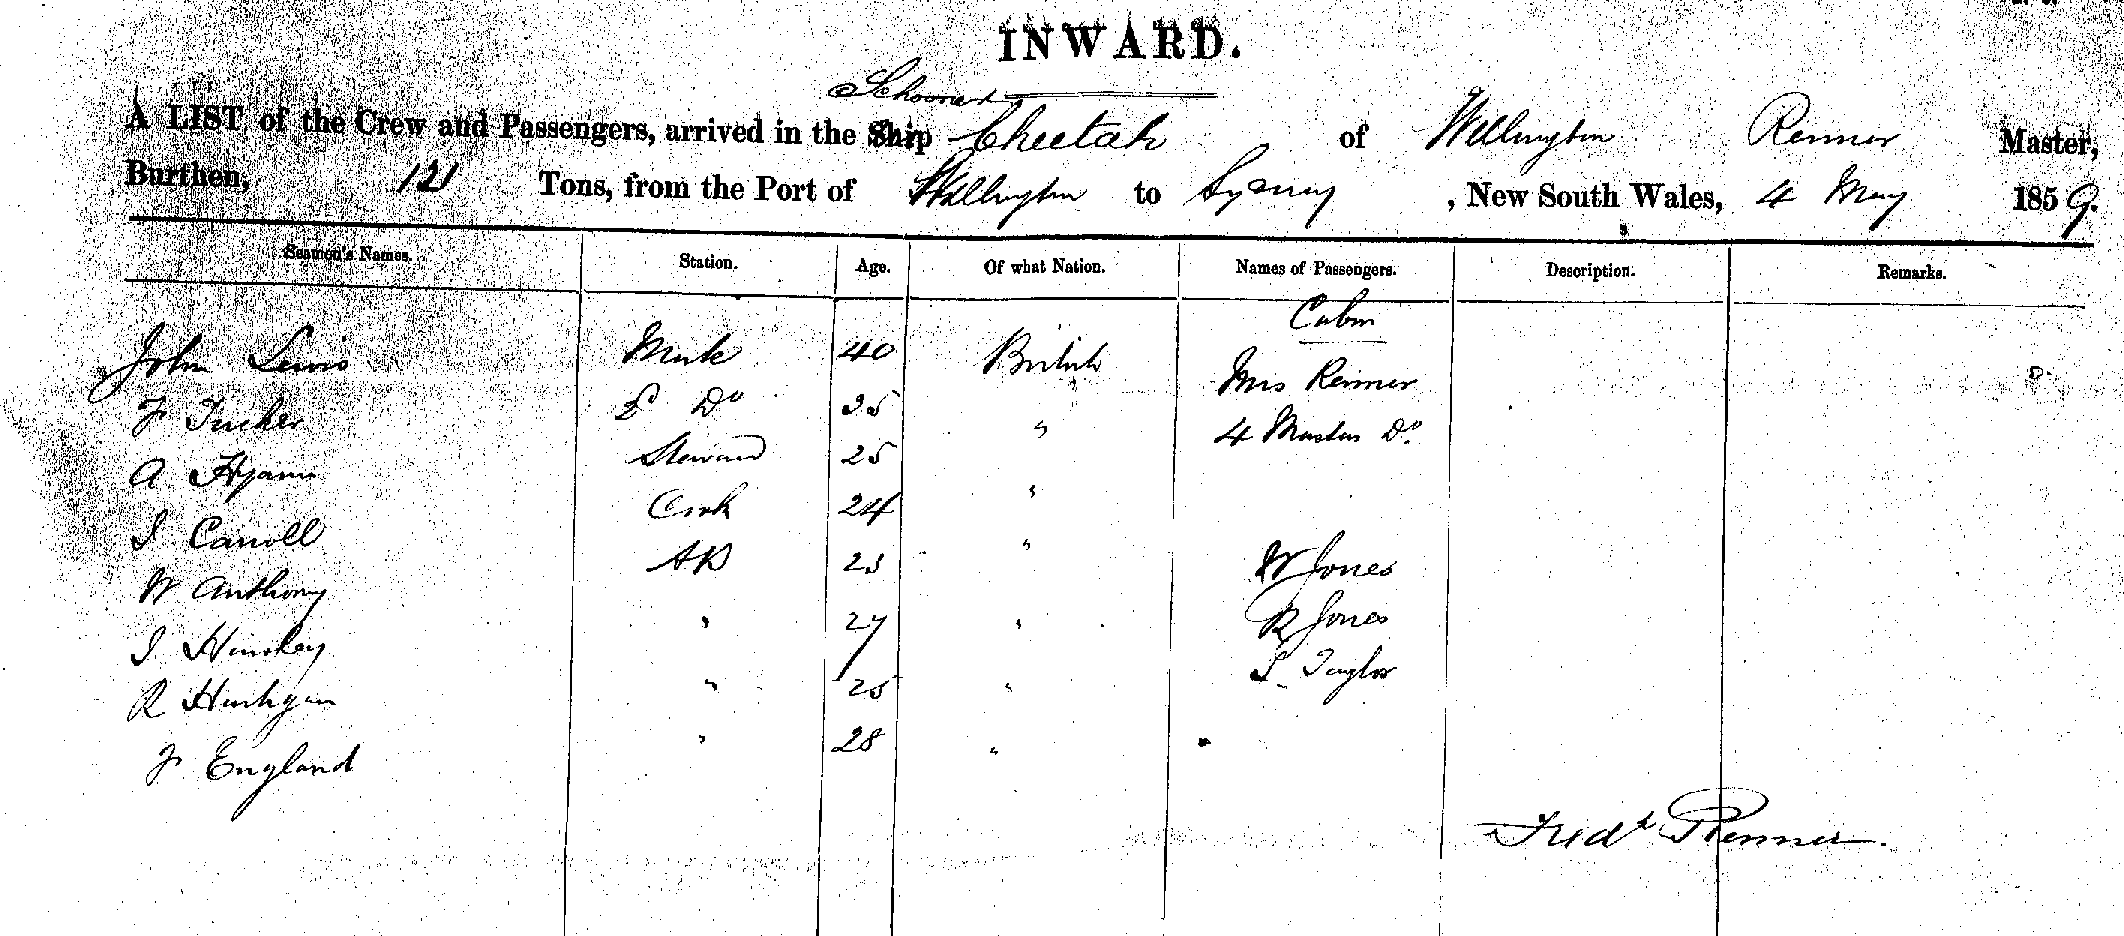 INWARD.
Schooner
A LIST of the Crew and Passengers, arrived in the Ship Cheetah of Wellington Renner Master,
Burthen, 121 Tons, from the Port of Wellington to Sydney, New South Wales, 4 May 1859.
Seamen's Names. Station. Age. Of what Nation. Names of Passengers. Description. Remarks.
Cabin
John Lewis Mate 40 British Mrs Renner
F Tucker 2 Do 35 " 4 Masters Do
A Steward 25 "
J Carroll Cook 24 "
W Anthony AB 23 " W Jones
J " 27 " R Jones
R " 25 " S Taylor
F England " 28 "
Fredk Renner.